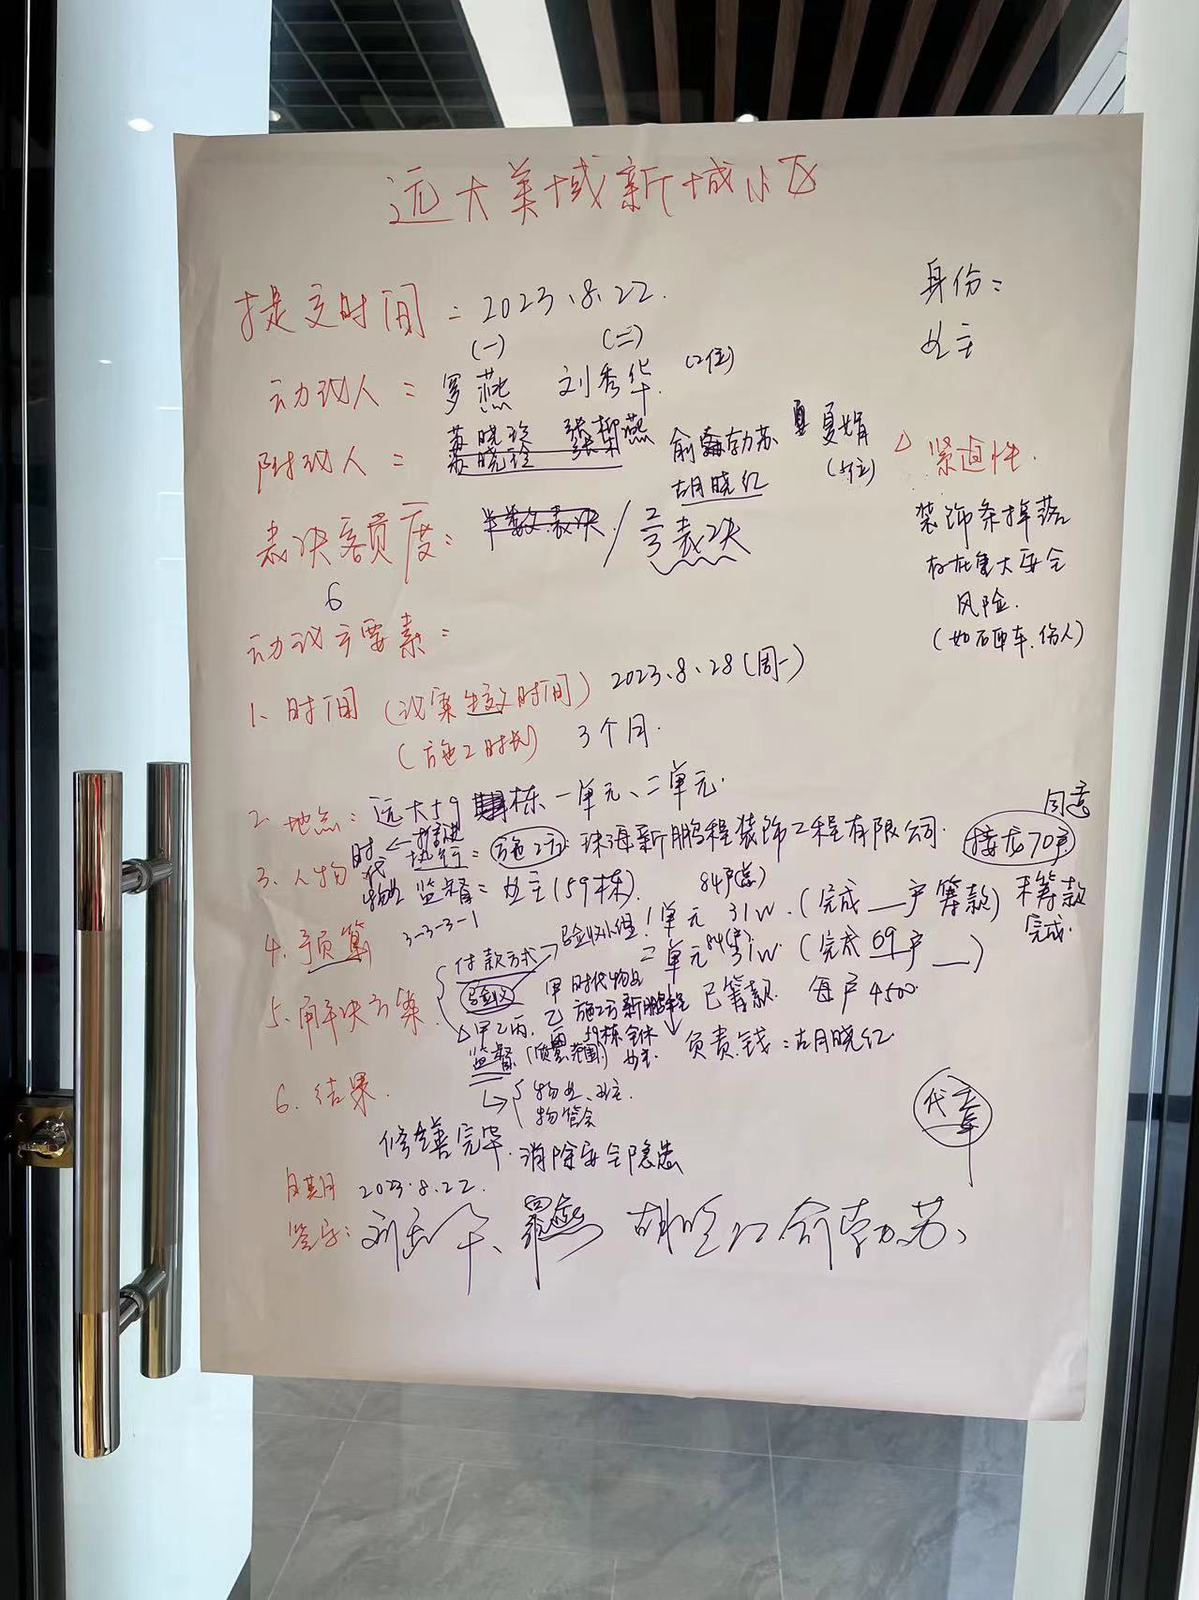 远大美域新城小区
提交时间：2023.8.22.
身份：
业主
(一) (二)
动议人：罗燕 刘秀华. (2位)
苏晓玲 张柳燕
附议人：苏晓玲 俞勃苏 夏娟
胡晓红 (5位)
△紧迫性.
表决额度：半数表决/2/3表决
装饰条掉落
存在重大安全
风险.
(如石砸车.伤人)
6
动议主要素：
1、时间(议案生效时间) 2023.8.28(周一)
(施工时长) 3个月.
2、地点：远大59栋一单元、二单元.
同意
3、人物 执行：施工方：珠海新鹏程装饰工程有限公司. 接龙70户
时代物业 ←推进
监督：业主(59栋).
84户(总)
4、预算 3-3-3-1
1单元 31W.(完成__户筹款) 未筹款
完成.
二单元 84(户) 31W (完成69户__)
付款方式→验收小组
5、解决方案.
验收
甲 时代物业
乙 施工方新鹏程
已筹款. 每户4500.
△甲乙丙. 丙 59栋全体业主.
监督(质量.范围)
负责.钱：胡晓红.
→物业、业主.
物管会
6、结果.
代章
修缮完毕.消除安全隐患
日期 2023.8.22.
签字：刘秀华、罗燕 胡晓红 俞勃苏、